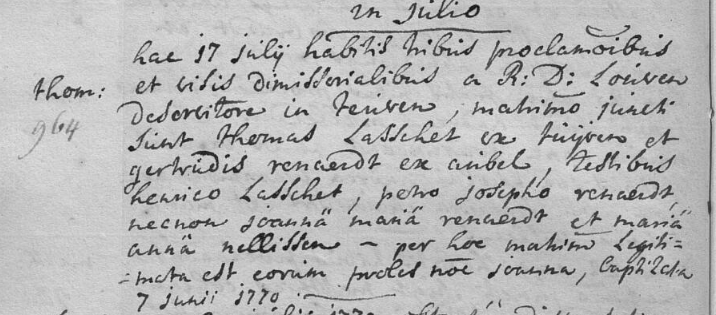 in Julio
hac 17 julij habitis tribus proclamoibus
thom: et visis dimissorialibus a R: D: Louwen
964 deservitore in teuven, matrimo juncti
sunt thomas Lasschet ex tuijven et
gertrudis renaerdt ex aubel, testibus
henrico Lasschet, petro josepho renaerdt,
necnon joannä mariä renaerdt et mariä
annä nellissen - per hoc matrim legiti=
=mata est eorum proles noe joanna, baptizata
7 junii 1770
1770